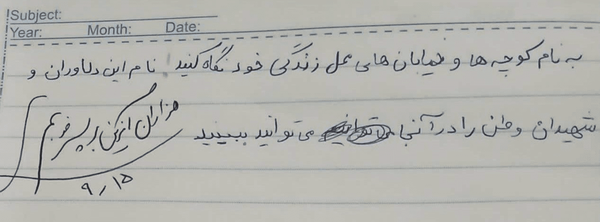 Subject:
Year: Month: Date:
به نام کوچه ها و خیابان های محل زندگی خود نگاه کنید نام این دلاوران و
شهیدان وطن را در آنجا می توانید ببینید
هزاران آفرین بر پسر خوبم
۹/۱۵